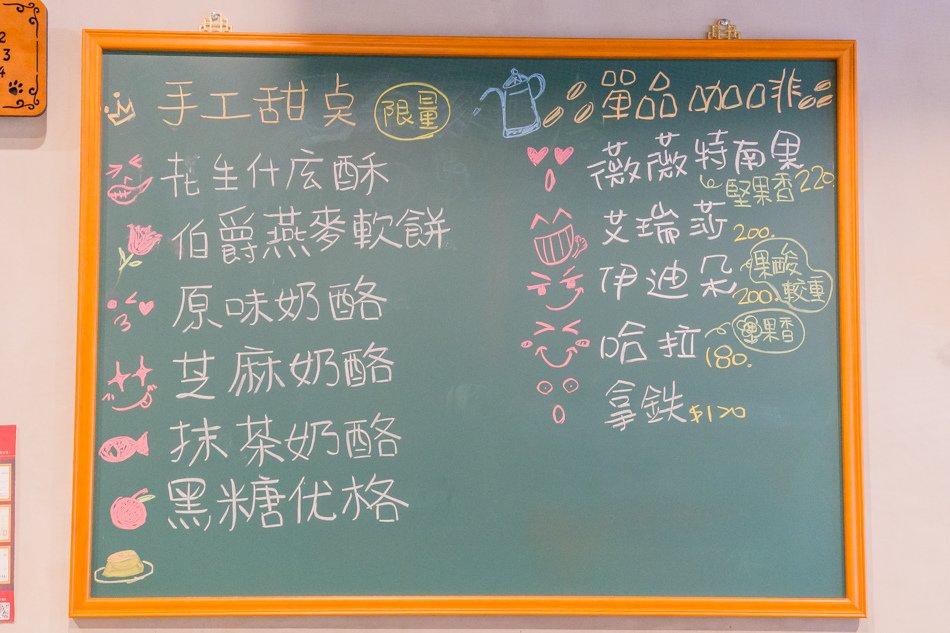 手工甜点 限量
花生什庅酥
伯爵燕麥軟餅
原味奶酪
芝麻奶酪
抹茶奶酪
黑糖优格
單品咖啡
薇薇特南果
堅果香 220.
艾瑞莎 200.
伊迪朵 200. 果酸較重
哈拉 180. 果香
拿鉄 $120
2
3
4